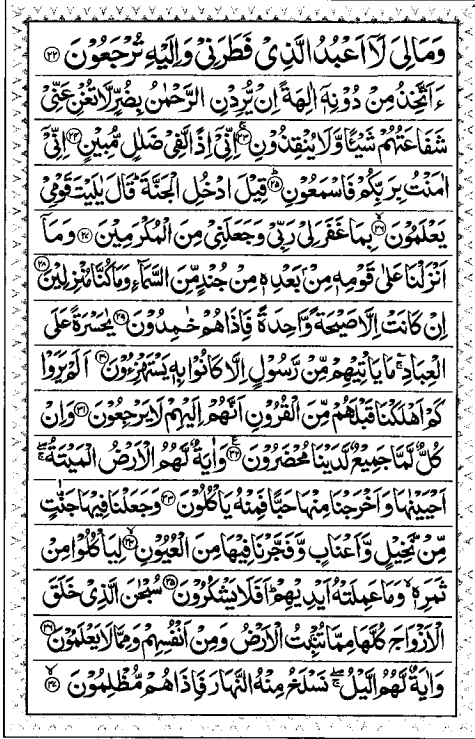 وَمَالِیَ لَاۤ اَعْبُدُ الَّذِیْ فَطَرَنِیْ وَاِلَیْهِ تُرْجَعُوْنَ ﴿۲۲﴾
ءَاَتَّخِذُ مِنْ دُوْنِهٖۤ اٰلِهَةً اِنْ یُّرِدْنِ الرَّحْمٰنُ بِضُرٍّ لَّا تُغْنِ عَنِّیْ
شَفَاعَتُهُمْ شَیْـًٔا وَّلَا یُنْقِذُوْنِ ﴿۲۳﴾ اِنِّیْۤ اِذًا لَّفِیْ ضَلٰلٍ مُّبِیْنٍ ﴿۲۴﴾ اِنِّیْۤ
اٰمَنْتُ بِرَبِّكُمْ فَاسْمَعُوْنِ ﴿۲۵﴾ قِیْلَ ادْخُلِ الْجَنَّةَ ؕ قَالَ یٰلَیْتَ قَوْمِیْ
یَعْلَمُوْنَ ﴿۲۶﴾ بِمَا غَفَرَ لِیْ رَبِّیْ وَجَعَلَنِیْ مِنَ الْمُكْرَمِیْنَ ﴿۲۷﴾ وَمَاۤ
اَنْزَلْنَا عَلٰی قَوْمِهٖ مِنْۢ بَعْدِهٖ مِنْ جُنْدٍ مِّنَ السَّمَآءِ وَمَا كُنَّا مُنْزِلِیْنَ ﴿۲۸﴾
اِنْ كَانَتْ اِلَّا صَیْحَةً وَّاحِدَةً فَاِذَا هُمْ خٰمِدُوْنَ ﴿۲۹﴾ یٰحَسْرَةً عَلَی
الْعِبَادِ ۚ مَا یَاْتِیْهِمْ مِّنْ رَّسُوْلٍ اِلَّا كَانُوْا بِهٖ یَسْتَهْزِءُوْنَ ﴿۳۰﴾ اَلَمْ یَرَوْا
كَمْ اَهْلَكْنَا قَبْلَهُمْ مِّنَ الْقُرُوْنِ اَنَّهُمْ اِلَیْهِمْ لَا یَرْجِعُوْنَ ﴿۳۱﴾ وَاِنْ
كُلٌّ لَّمَّا جَمِیْعٌ لَّدَیْنَا مُحْضَرُوْنَ ﴿۳۲﴾ وَاٰیَةٌ لَّهُمُ الْاَرْضُ الْمَیْتَةُ ۖۚ
اَحْیَیْنٰهَا وَاَخْرَجْنَا مِنْهَا حَبًّا فَمِنْهُ یَاْكُلُوْنَ ﴿۳۳﴾ وَجَعَلْنَا فِیْهَا جَنّٰتٍ
مِّنْ نَّخِیْلٍ وَّاَعْنَابٍ وَّفَجَّرْنَا فِیْهَا مِنَ الْعُیُوْنِ ﴿۳۴﴾ لِیَاْكُلُوْا مِنْ
ثَمَرِهٖ ۙ وَمَا عَمِلَتْهُ اَیْدِیْهِمْ ؕ اَفَلَا یَشْكُرُوْنَ ﴿۳۵﴾ سُبْحٰنَ الَّذِیْ خَلَقَ
الْاَزْوَاجَ كُلَّهَا مِمَّا تُنْۢبِتُ الْاَرْضُ وَمِنْ اَنْفُسِهِمْ وَمِمَّا لَا یَعْلَمُوْنَ ﴿۳۶﴾
وَاٰیَةٌ لَّهُمُ الَّیْلُ ۖۚ نَسْلَخُ مِنْهُ النَّهَارَ فَاِذَا هُمْ مُّظْلِمُوْنَ ﴿۳۷﴾